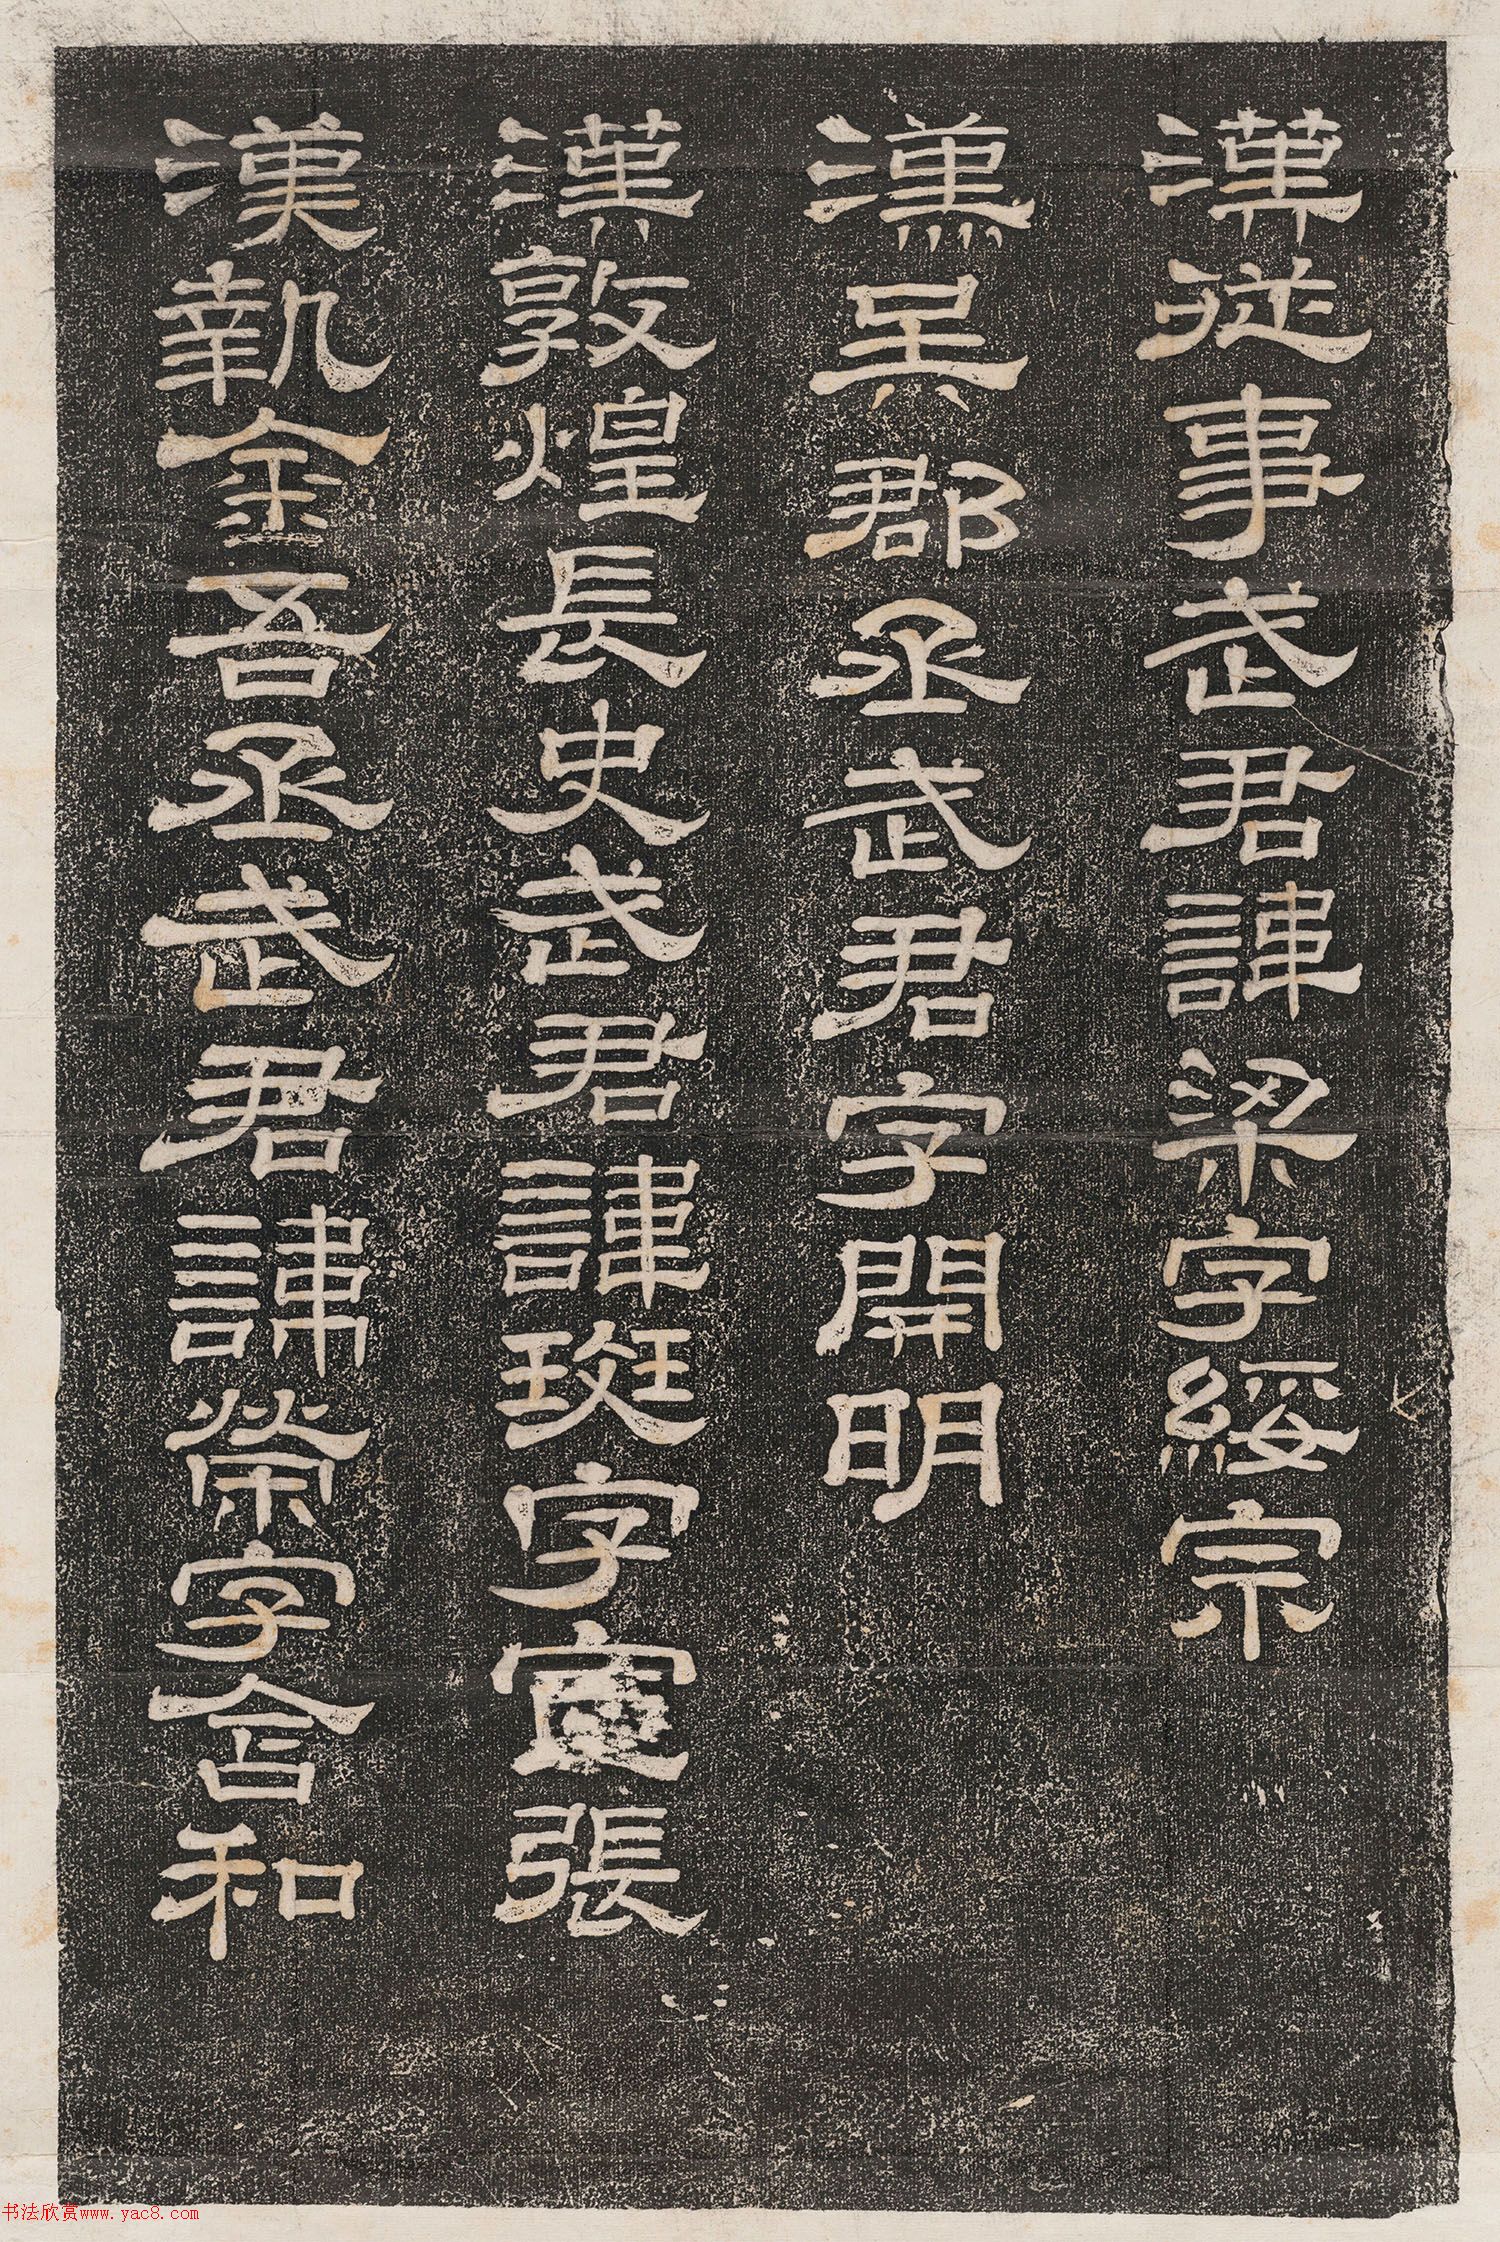 漢從事武君諱梁字綏宗
漢吳郡丞武君字開明
漢敦煌長史武君諱斑字宣張
漢執金吾丞武君諱榮字含和
书法欣赏www.yac8.com